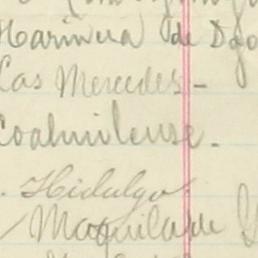 Harinera de Dgo
Las Mercedes -
Coahuilense.
Hidalgo.
Maquila de